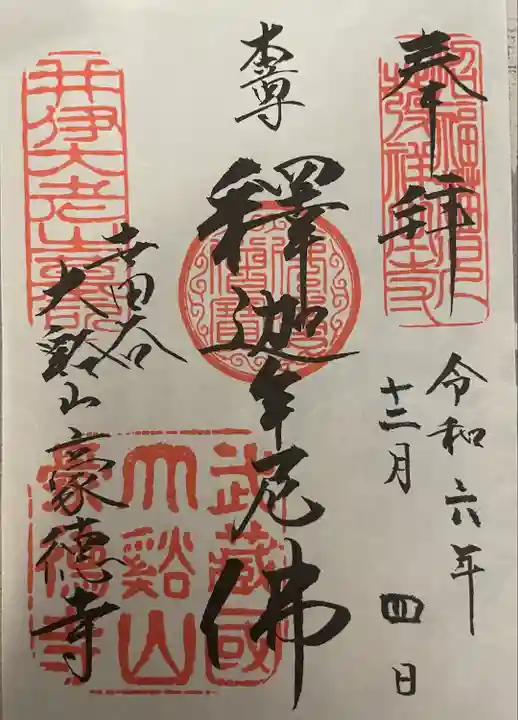 奉拝
令和六年
十二月 四日
本尊
釋迦牟尼佛
世田谷
大谿山豪德寺
武蔵國
大谿山
豪德寺